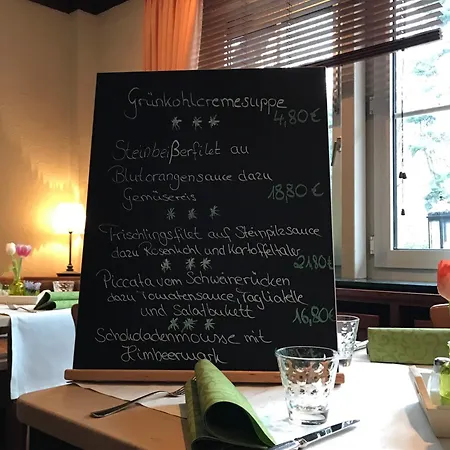 Grünkohlcremesuppe
4,80€
Steinbeißerfilet au
Blutorangensauce dazu
Gemüsereis 18,80€
Frischlingsfilet auf Steinpilzsauce
dazu Rosenkohl und Kartoffeltaler
21,80€
Piccata vom Schwänerücken
dazu Tomatensauce, Tagliatelle
und Salatbukett 16,80€
Schokoladenmousse mit
Himbeermark